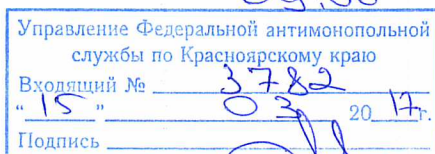 Управление Федеральной антимонопольной
службы по Красноярскому краю
Входящий № 3782
" 15 " 03 2017г.
Подпись